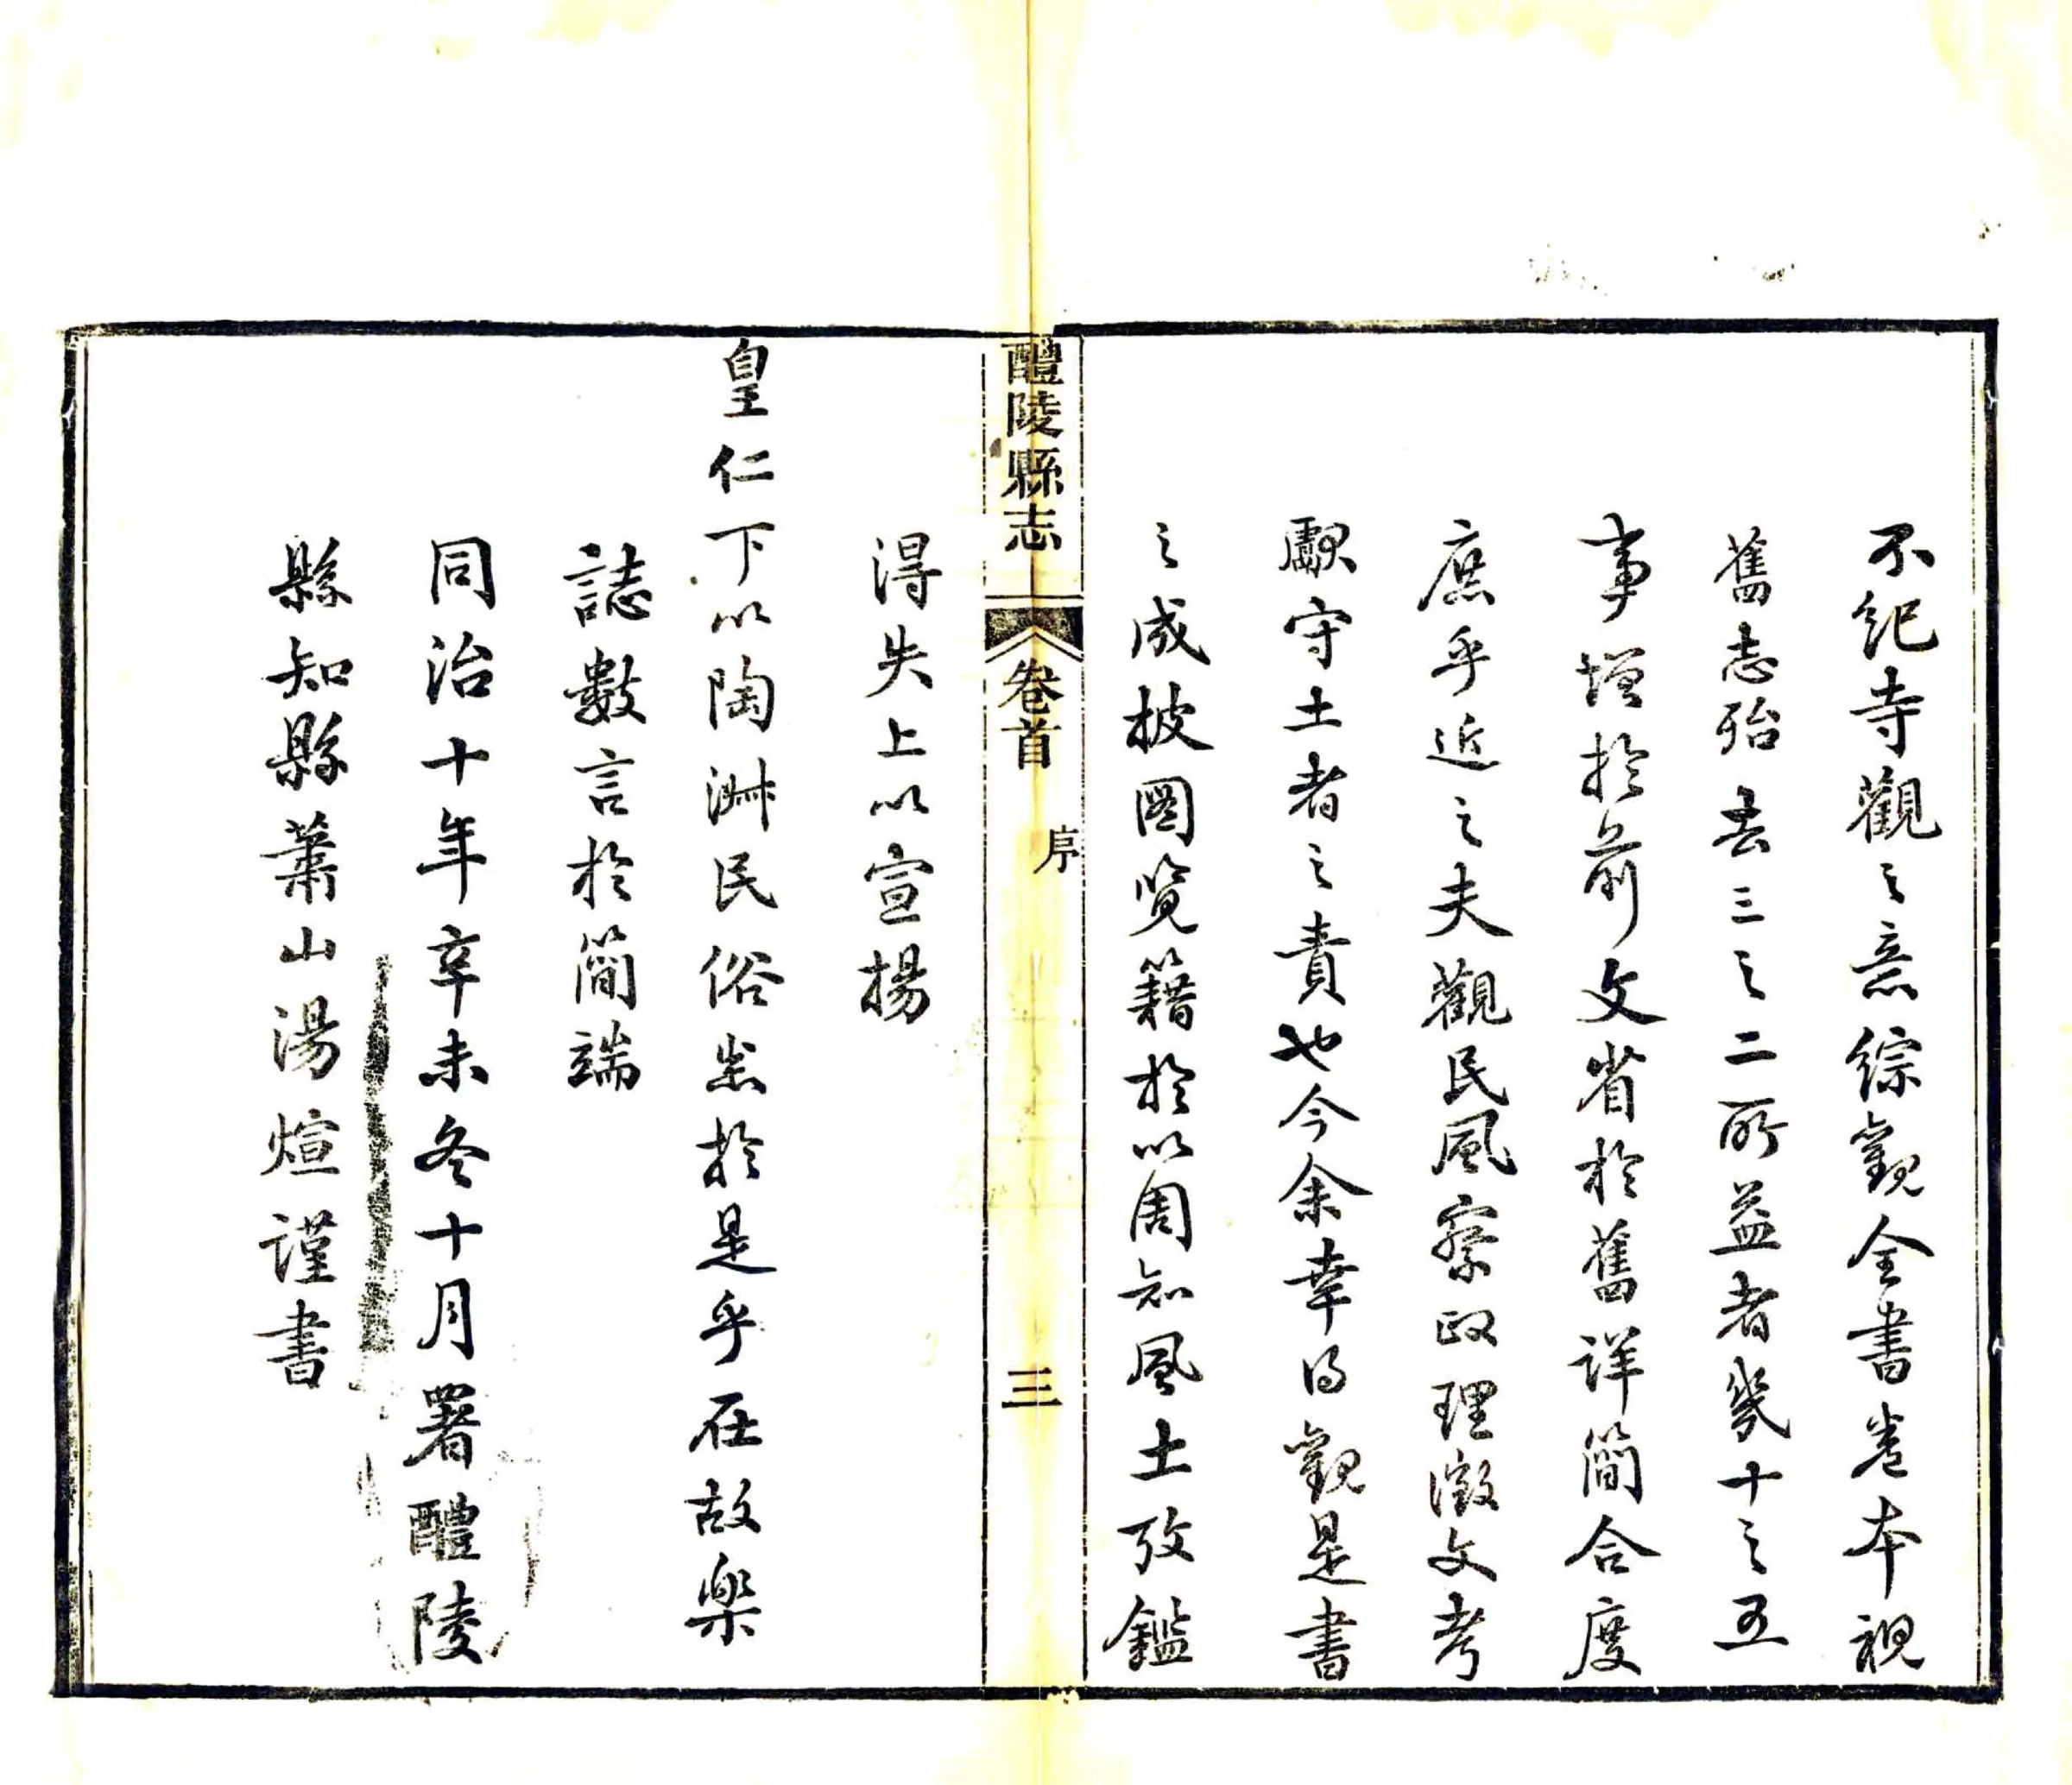 不紀寺觀之意綜觀全書卷本視
舊志殆去三之二所益者幾十之五
事增於前文省於舊詳簡合度
庶乎近之夫觀民風察政理徵文考
獻守土者之責也今余幸得觀是書
之成披圖覽籍於以周知風土攷鑑
醴陵縣志
卷首
序
三
得失上以宣揚
皇仁下以陶淋民俗耑於是乎在故樂
誌數言於簡端
同治十年辛未冬十月署醴陵
縣知縣蕭山湯煊謹書